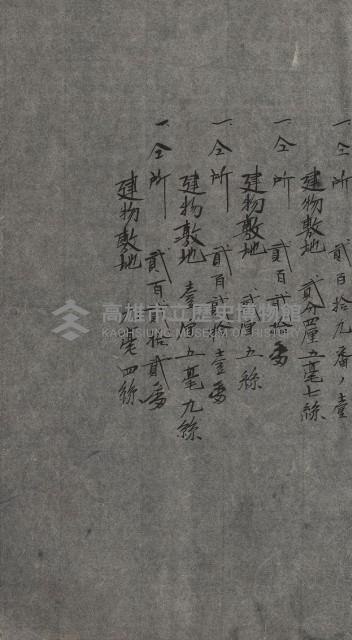 一、仝所 貳百拾九番ノ壹
建物敷地 貳分四厘五毫七絲
一、仝所 貳百貳拾番
建物敷地 貳厘五絲
一、仝所 貳百貳拾壹番
建物敷地 壹厘五毫九絲
一、仝所 貳百貳拾貳番
建物敷地 毫四絲
高雄市立歷史博物館
KAOHSIUNG MUSEUM OF HISTORY